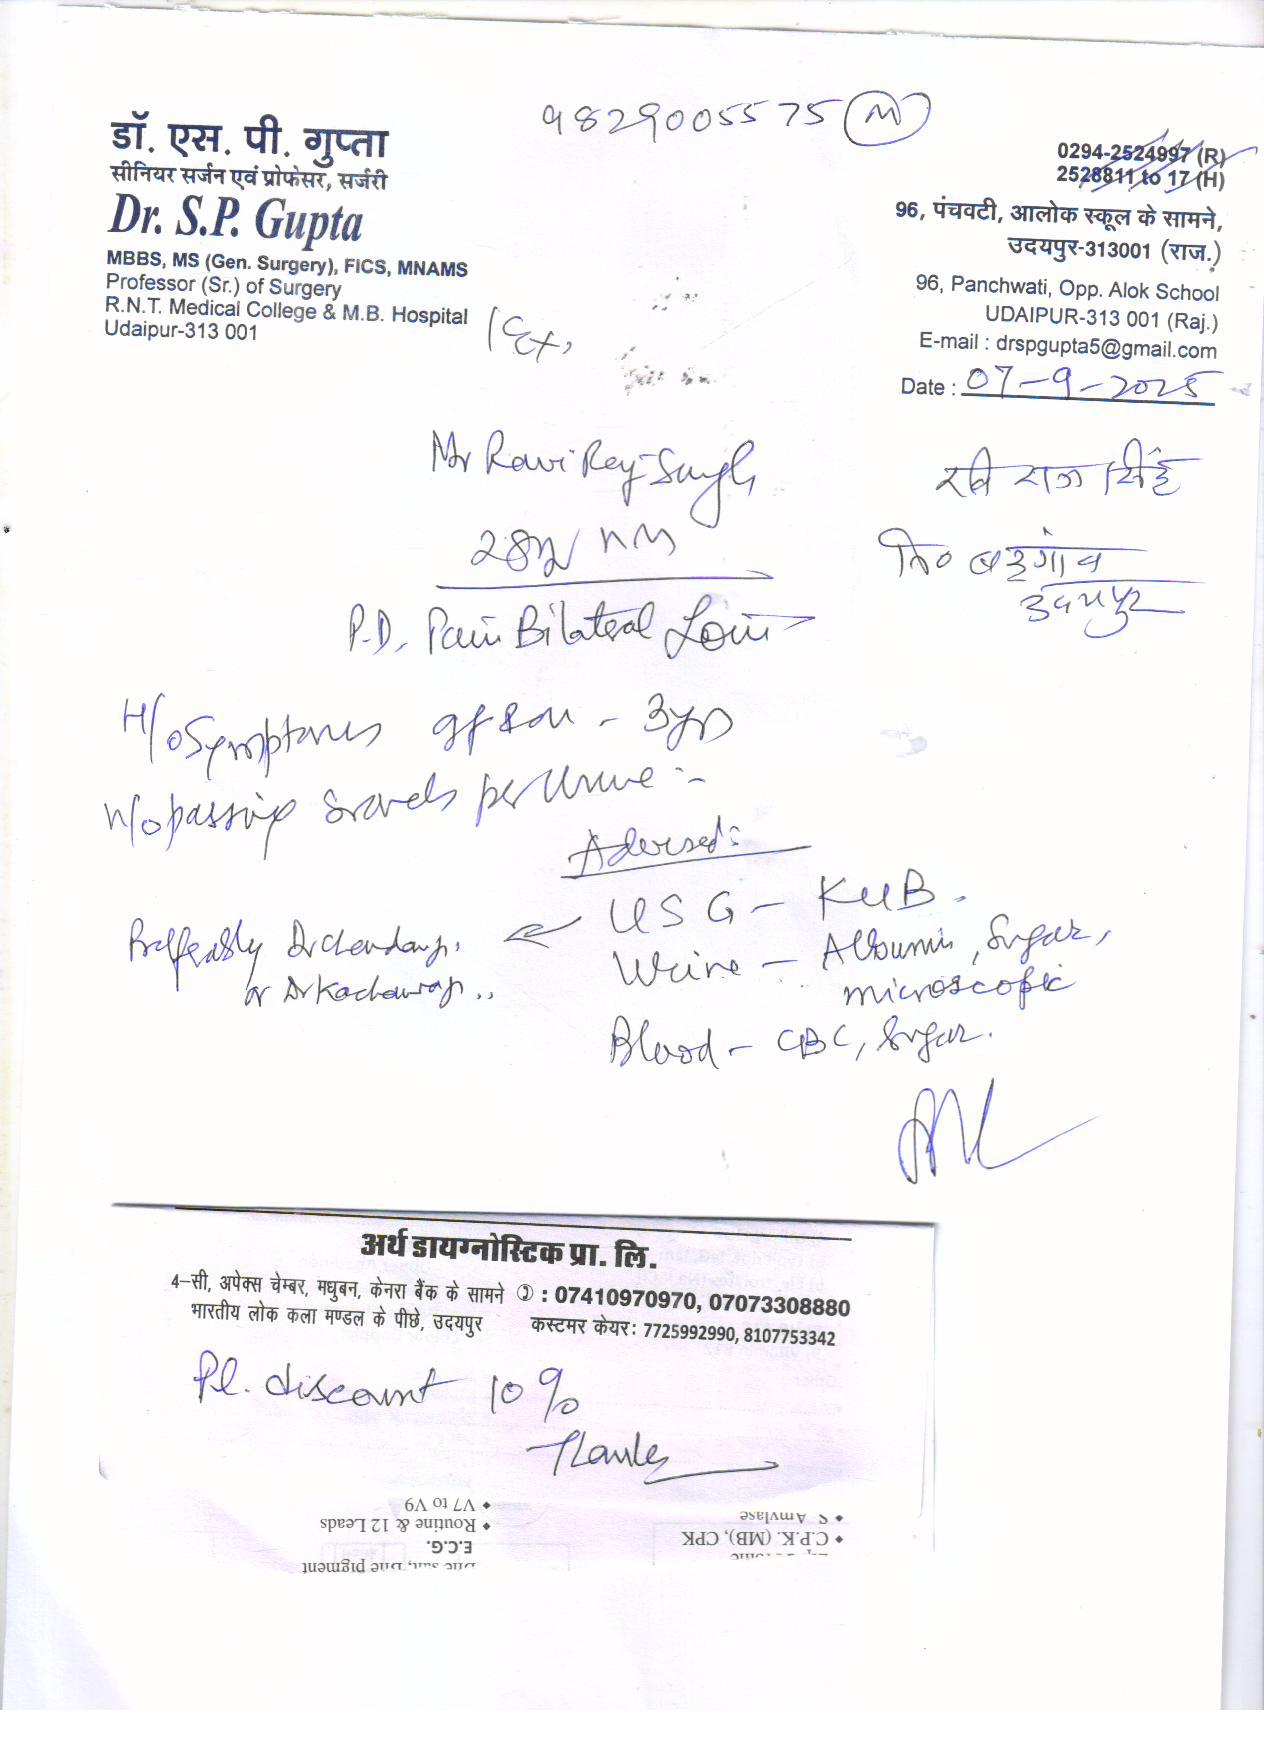 9829005575 (M)
डॉ. एस. पी. गुप्ता
सीनियर सर्जन एवं प्रोफेसर, सर्जरी
Dr. S.P. Gupta
MBBS, MS (Gen. Surgery), FICS, MNAMS
Professor (Sr.) of Surgery
R.N.T. Medical College & M.B. Hospital
Udaipur-313 001
(Ex,
0294-2524997 (R)
2528811 to 17 (H)
96, पंचवटी, आलोक स्कूल के सामने,
उदयपुर-313001 (राज.)
96, Panchwati, Opp. Alok School
UDAIPUR-313 001 (Raj.)
E-mail : drspgupta5@gmail.com
Date : 07-9-2025
Mr Ravi Raj Singh
28y
रवि राज सिंह
नि० बड़गांव
उदयपुर
P.D. Pain Bilateral Loin
H/o Symptoms off & on - 3yrs
H/o passing Gravels per Urine :-
Advised:
USG - KUB.
Preferably Dr
or Dr
Urine - Albumin, Sugar,
microscopic
Blood - CBC, Sugar.
अर्थ डायग्नोस्टिक प्रा. लि.
4-सी, अपेक्स चेम्बर, मधुबन, केनरा बैंक के सामने : 07410970970, 07073308880
भारतीय लोक कला मण्डल के पीछे, उदयपुर कस्टमर केयर: 7725992990, 8107753342
Pl. discount 10%
Thanks
V7 to V9
Routine & 12 Leads
E.C.G.
S. Amylase
C.P.K. (MB), CPK